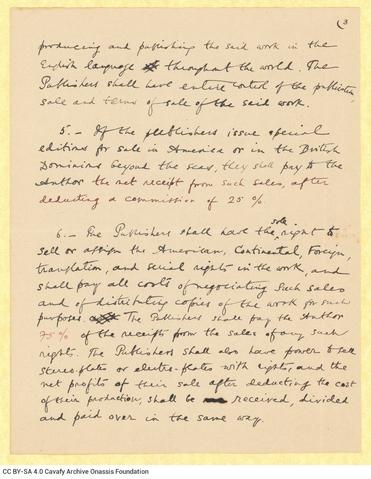 3
producing and publishing the said work in the
English language throughout the world. The
Publishers shall have entire control of the publication
sale and terms of sale of the said work.
5. - If the publishers issue special
editions for sale in America or in the British
Dominions beyond the seas, they shall pay to the
Author the net receipt from such sales, after
deducting a commission of 25 %
6. - The Publishers shall have the sole right to
sell or assign the American, Continental, Foreign,
translation, and serial rights in the work, and
shall pay all costs of negotiating such sales
and of distributing copies of the work for such
purposes The Publishers shall pay the Author
75 % of the receipts from the sales of any such
rights. The Publishers shall also have power to sell
stereo-plates or electro-plates with rights, and the
net profits of their sale after deducting the cost
of their production, shall be received, divided
and paid over in the same way.
CC BY-SA 4.0 Cavafy Archive Onassis Foundation